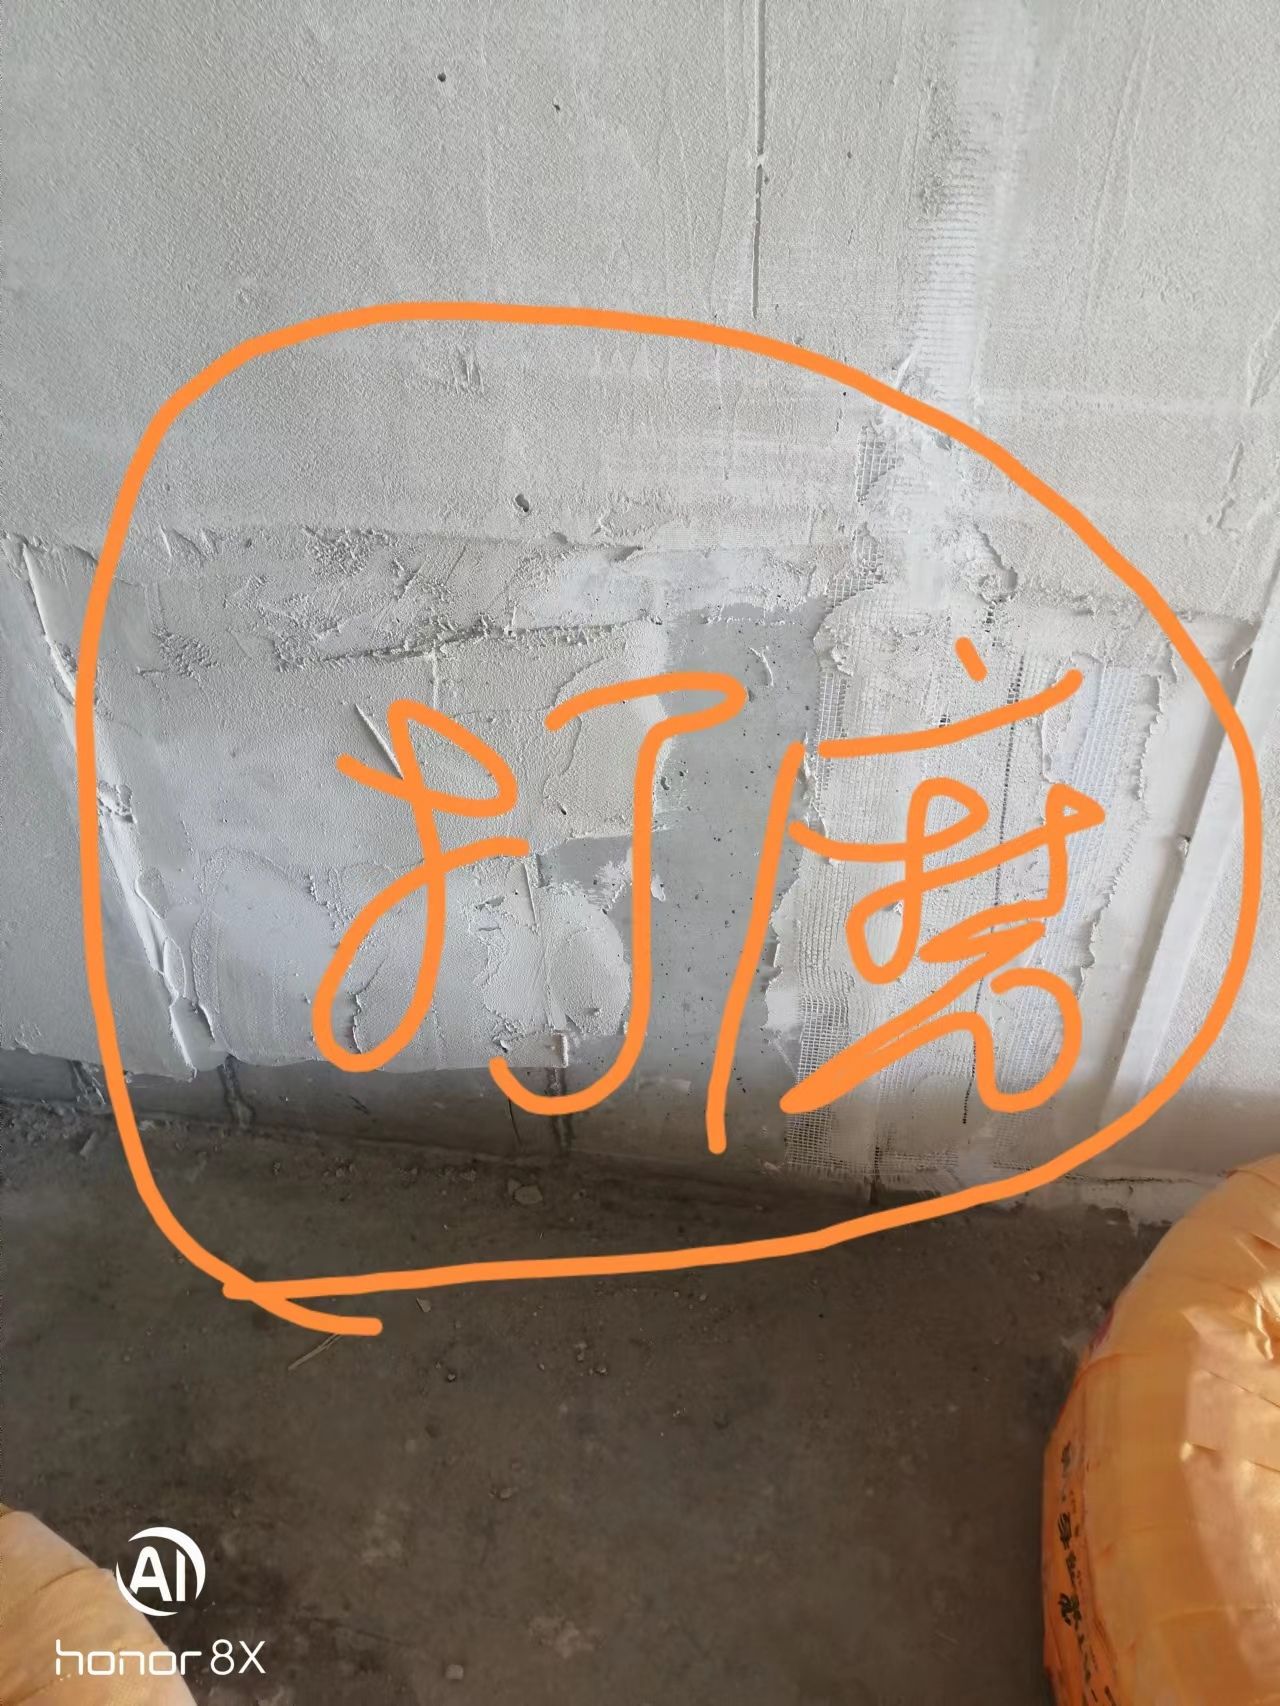 打磨
AI
honor 8X